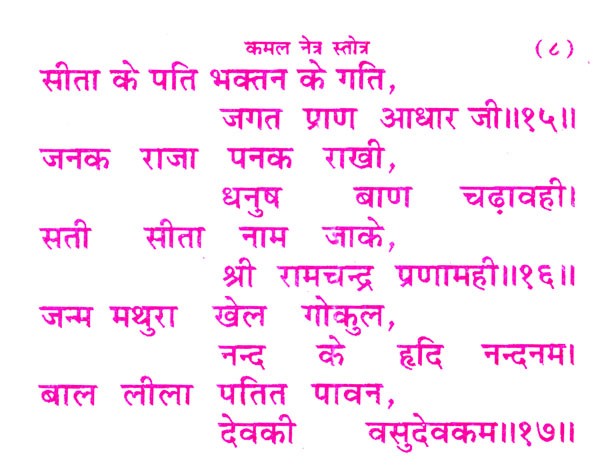 कमल नेत्र स्तोत्र (८)
सीता के पति भक्तन के गति,
जगत प्राण आधार जी॥१५॥
जनक राजा पनक राखी,
धनुष बाण चढ़ावही।
सती सीता नाम जाके,
श्री रामचन्द्र प्रणामही॥१६॥
जन्म मथुरा खेल गोकुल,
नन्द के हृदि नन्दनम।
बाल लीला पतित पावन,
देवकी वसुदेवकम॥१७॥